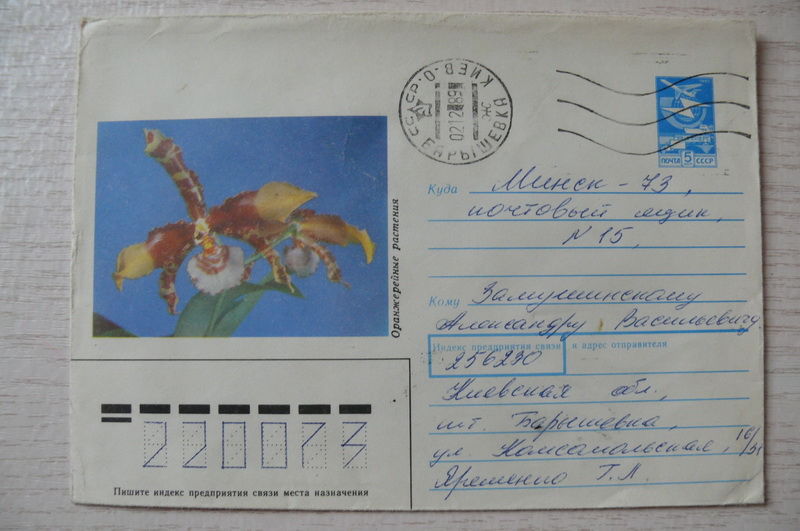 СССР · КИЕВ · О
02 12 89
БАРЫШЕВКА
ПОЧТА 5 СССР
Оранжерейные растения
Куда Минск - 73,
почтовый ящик,
N 15,
Кому Замушинскому
Александру Васильевичу
Индекс предприятия связи и адрес отправителя
256230
Киевская обл.,
пгт. Барышевка,
ул. Комсомольская,
Яременко Г. Л.
220073
Пишите индекс предприятия связи места назначения